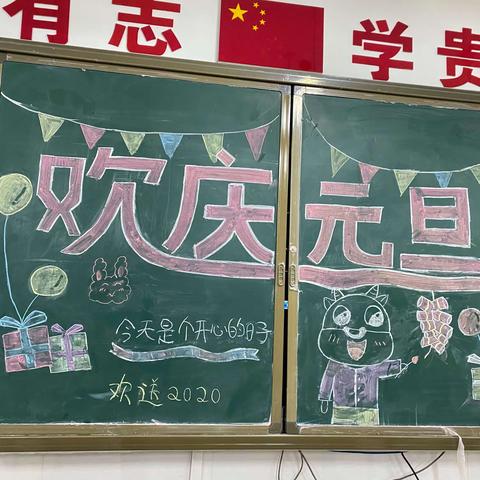 有志 学贵
欢庆元旦
今天是个开心的日子
欢送2020